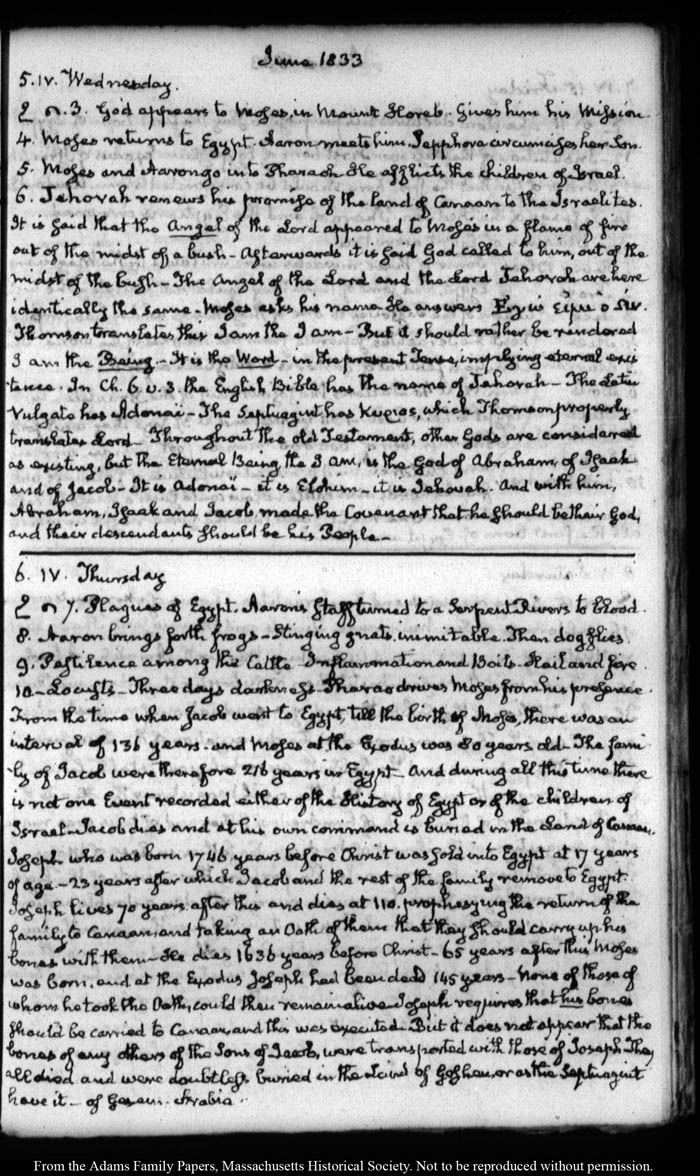 June 1833
5. IV. Wednesday.
3. God appears to Moses, in Mount Horeb. Gives him his Mission.
4. Moses returns to Egypt. Aaron meets him. Sepphora circumcises her Son.
5. Moses and Aaron go in to Pharaoh. He afflicts the children of Israel.
6. Jehovah renews his promise of the land of Canaan to the Israelites.
It is said that the Angel of the Lord appeared to Moses in a flame of fire
out of the midst of a bush – Afterwards it is said God called to him, out of the
midst of the bush – The Angel of the Lord and the Lord Jehovah are here
identically the same – Moses asks his name. He answers Εγω ειμι ο ων.
Thomson translates this I am the I am – But it should rather be rendered
I am the Being. – It is the Word – in the present Tense, implying eternal exis
tence. In Ch. 6 v. 3. the English Bible has the name of Jehovah – The Latin
Vulgate has Adonaï – The Septuagint has Κυριος, which Thomson properly
translates Lord – Throughout the old Testament, other Gods are considered
as existing, but the Eternal Being the I am, is the God of Abraham, of Isaak
and of Jacob – It is Adonaï – it is Elohim – it is Jehovah. And with him,
Abraham, Isaak and Jacob, made the Covenant that he should be their God,
and their descendants should be his People –
6. IV. Thursday
7. Plagues of Egypt. Aaron's Staff turned to a Serpent. Rivers to blood.
8. Aaron brings forth frogs – Stinging gnats, inimitable. Then dog flies.
9. Pestilence among the Cattle – Inflammation and Boils – Hail and fire.
10 – Locusts – Three days darkness – Pharao drives Moses from his presence.
From the time when Jacob went to Egypt, till the birth of Moses, there was an
interval of 136 years. and Moses at the Exodus was 80 years old – The fami
ly of Jacob were therefore 216 years in Egypt – And during all this time there
is not one Event recorded either of the History of Egypt or of the children of
Israel – Jacob dies and at his own command is buried in the Land of Canaan.
Joseph who was born 1746 years before Christ was sold into Egypt at 17 years
of age. – 23 years after which Jacob and the rest of the family remove to Egypt.
Joseph lives 70 years after this and dies at 110. prophesying the return of the
family to Canaan, and taking an Oath of them that they should carry up his
bones with them – He dies 1636 years before Christ – 65 years after this Moses
was born, and at the Exodus Joseph had been dead 145 years – None of those of
whom he took the Oath, could then remain alive. Joseph requires that his bones
should be carried to Canaan, and this was executed. But it does not appear that the
bones of any others of the Sons of Jacob, were transported with those of Joseph. They
all died and were doubtless buried in the Land of Goshen, or as the Septuagint
have it – of Gesen. Arabia.
From the Adams Family Papers, Massachusetts Historical Society. Not to be reproduced without permission.